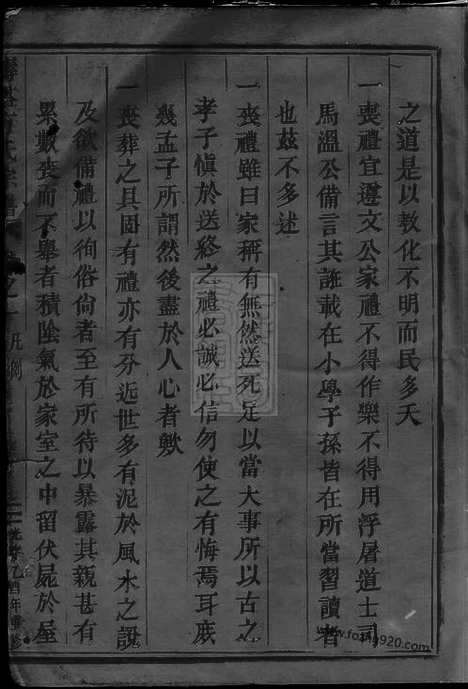 之道是以教化不明而民多夭
一喪禮宜遵文公家禮不得作樂不得用浮屠道士司
馬溫公備言其誑載在小學子孫皆在所當習讀者
也茲不多述
一喪禮雖曰家稱有無然送死足以當大事所以古之
孝子慎於送終之禮必誠必信勿使之有悔焉耳庶
幾孟子所謂然後盡於人心者歟
一喪葬之具固有禮亦有分近世多有泥於風水之說
及欲備禮以徇俗尚者至有所待以暴露其親甚有
累數喪而不舉者積陰氣於家室之中留伏屍於屋
凡例
乙酉年重修
www.fotang920.com